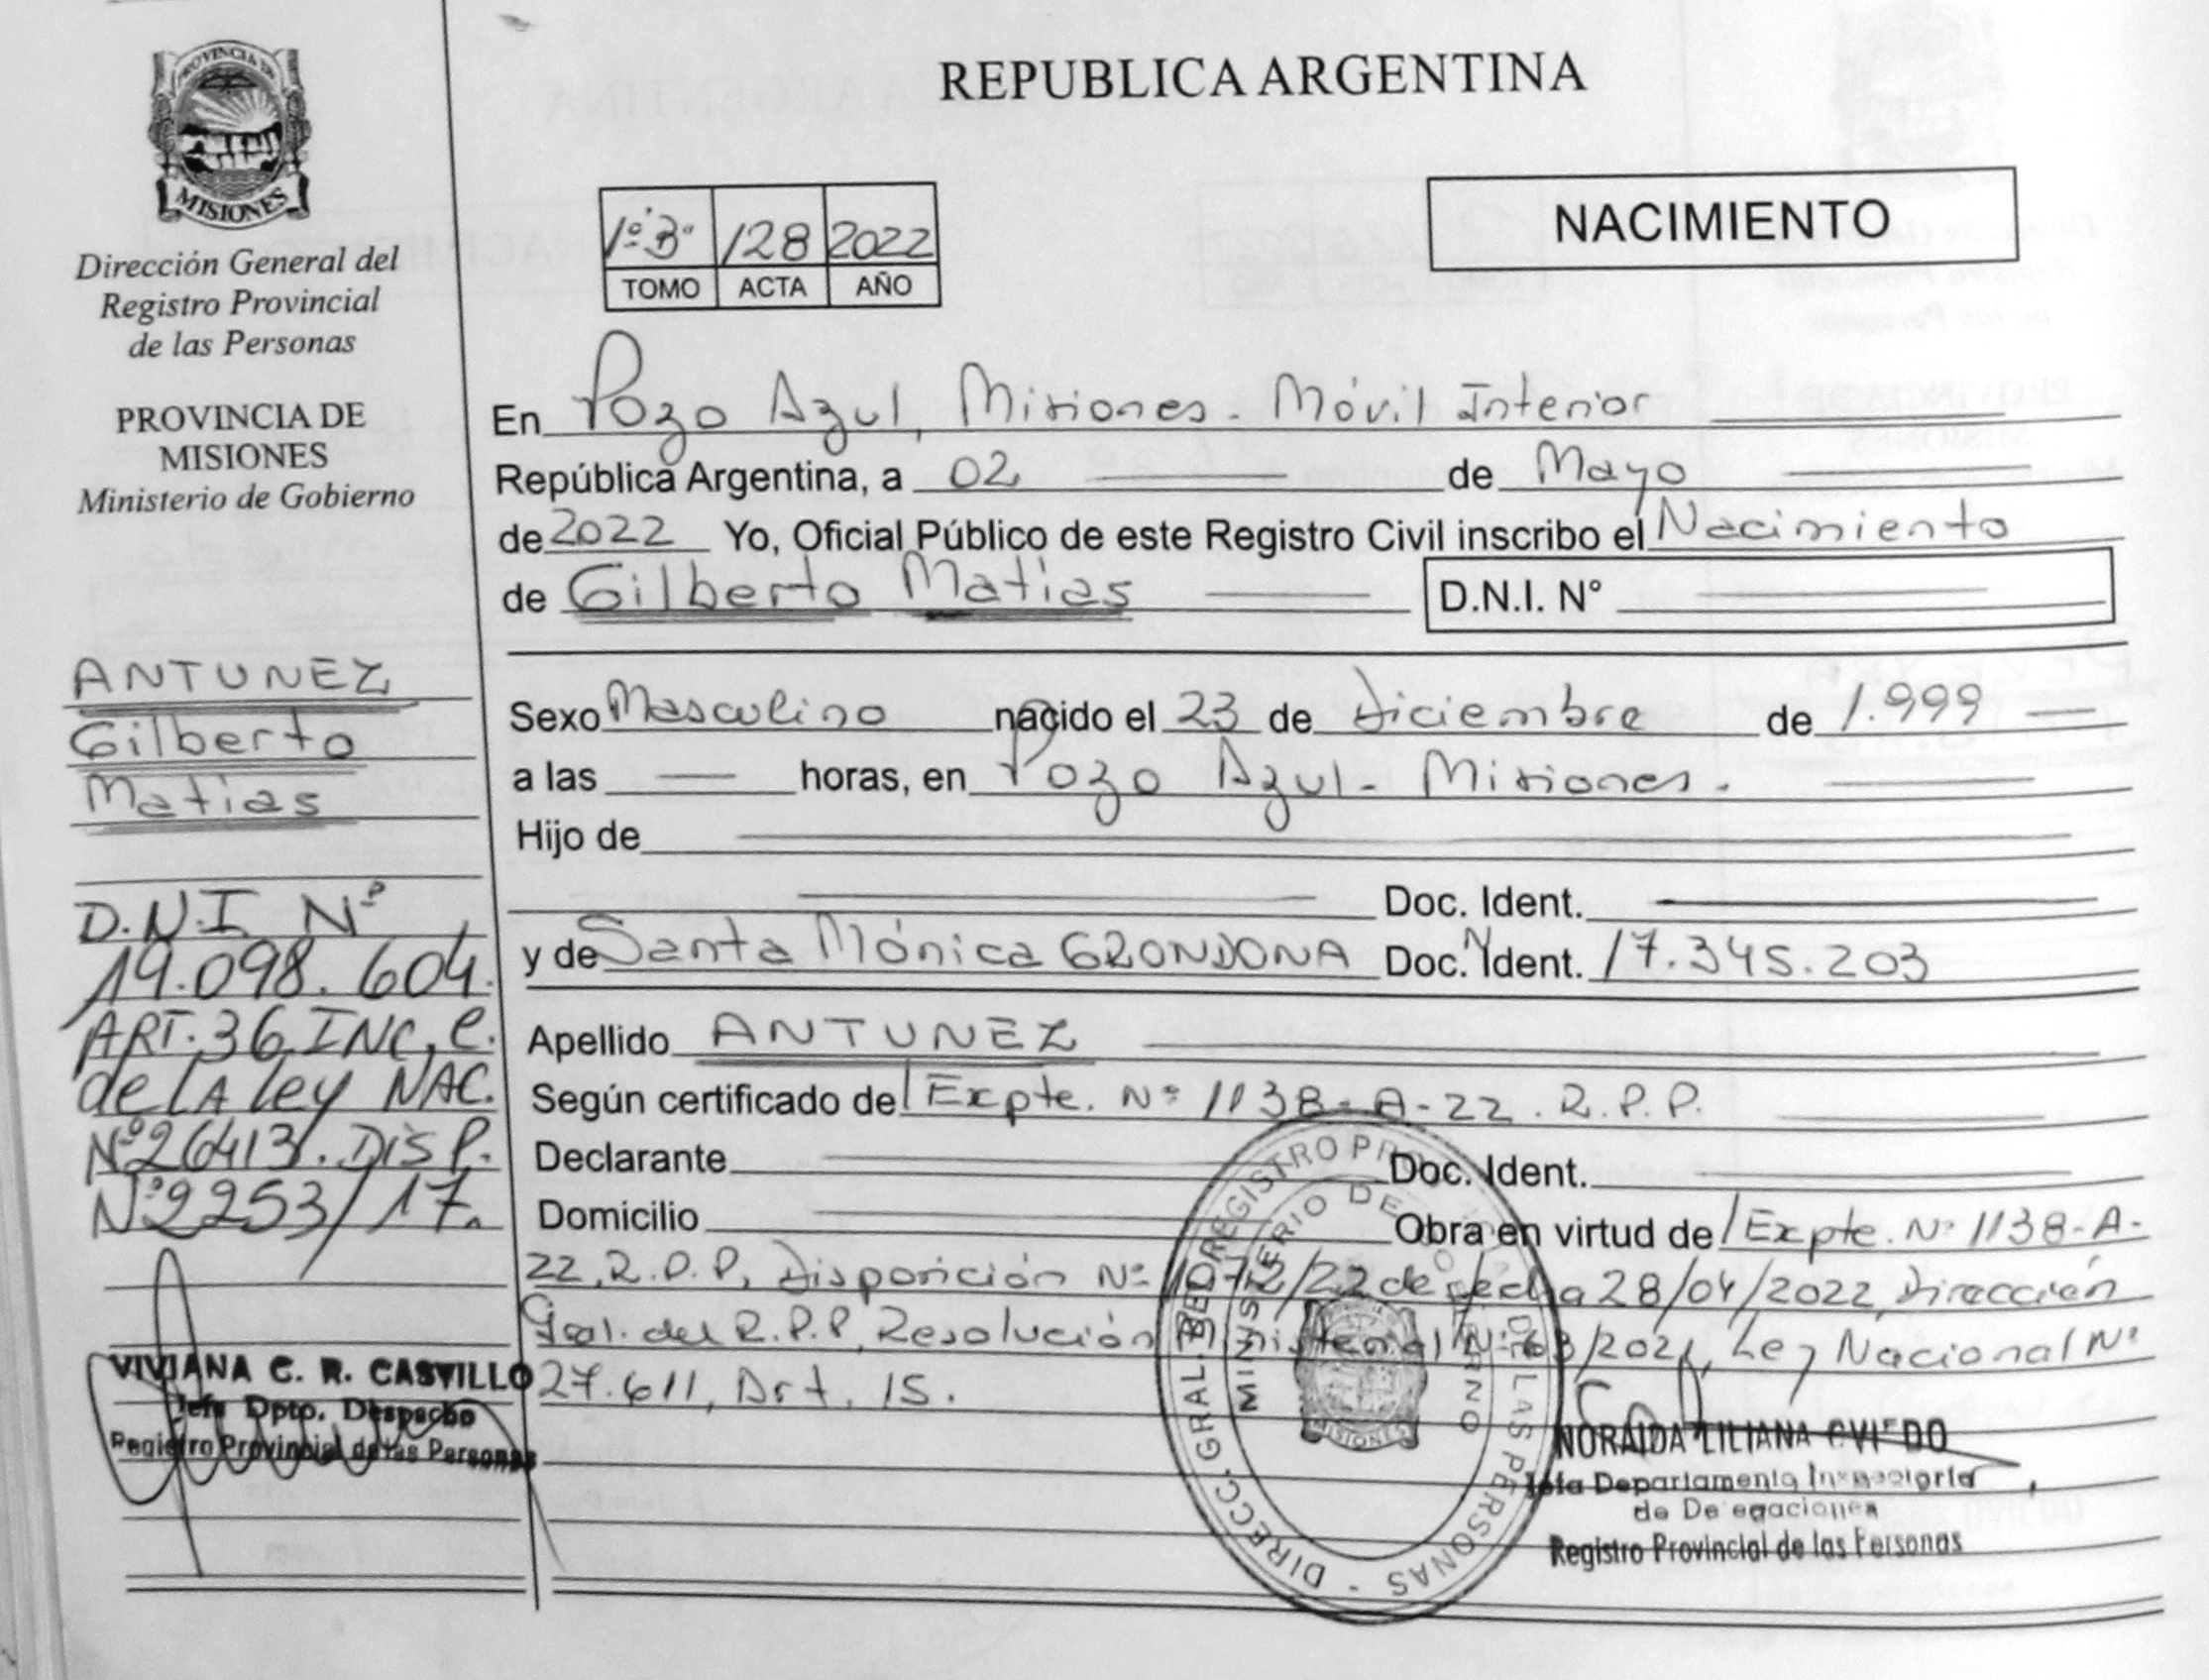 PROVINCIA DE
MISIONES
Dirección General del
Registro Provincial
de las Personas
PROVINCIA DE
MISIONES
Ministerio de Gobierno
ANTUNEZ
Gilberto
Matias
D.N.I Nº
19.098.604.
ART.36.INC,C.
de LA Ley NAC.
Nº26413. DISP.
Nº2253/17.
VIVIANA C. R. CASTILLO
Jefa Dpto. Despacho
Registro Provincial de las Personas
REPUBLICA ARGENTINA
1º"B" 128 2022
TOMO ACTA AÑO
NACIMIENTO
En Pozo Azul, Misiones - Móvil Interior
República Argentina, a 02 de Mayo
de 2022 Yo, Oficial Público de este Registro Civil inscribo el Nacimiento
de Gilberto Matias D.N.I. N°
Sexo Masculino nacido el 23 de Diciembre de 1.999
a las horas, en Pozo Azul - Misiones.
Hijo de
Doc. Ident.
y de Santa Mónica GRONDONA Doc. Ident. 17.345.203
Apellido ANTUNEZ
Según certificado de Expte. Nº 1138-A-22. R.P.P.
Declarante Doc. Ident.
Domicilio Obra en virtud de Expte. Nº 1138-A-
22, R.P.P, Disposición Nº /22 de fecha 28/04/2022, Dirección
Gral. del R.P.P, Resolución Ministerial Nº 63/2021, Ley Nacional Nº
27.611, Art. 15.
DIRECC. GRAL. DEL REGISTRO PROV. DE LAS PERSONAS -
MINISTERIO DE GOBIERNO
MISIONES
NORAIDA LILIANA OVIEDO
Jefa Departamento Inspectoria
de Delegaciones
Registro Provincial de las Personas